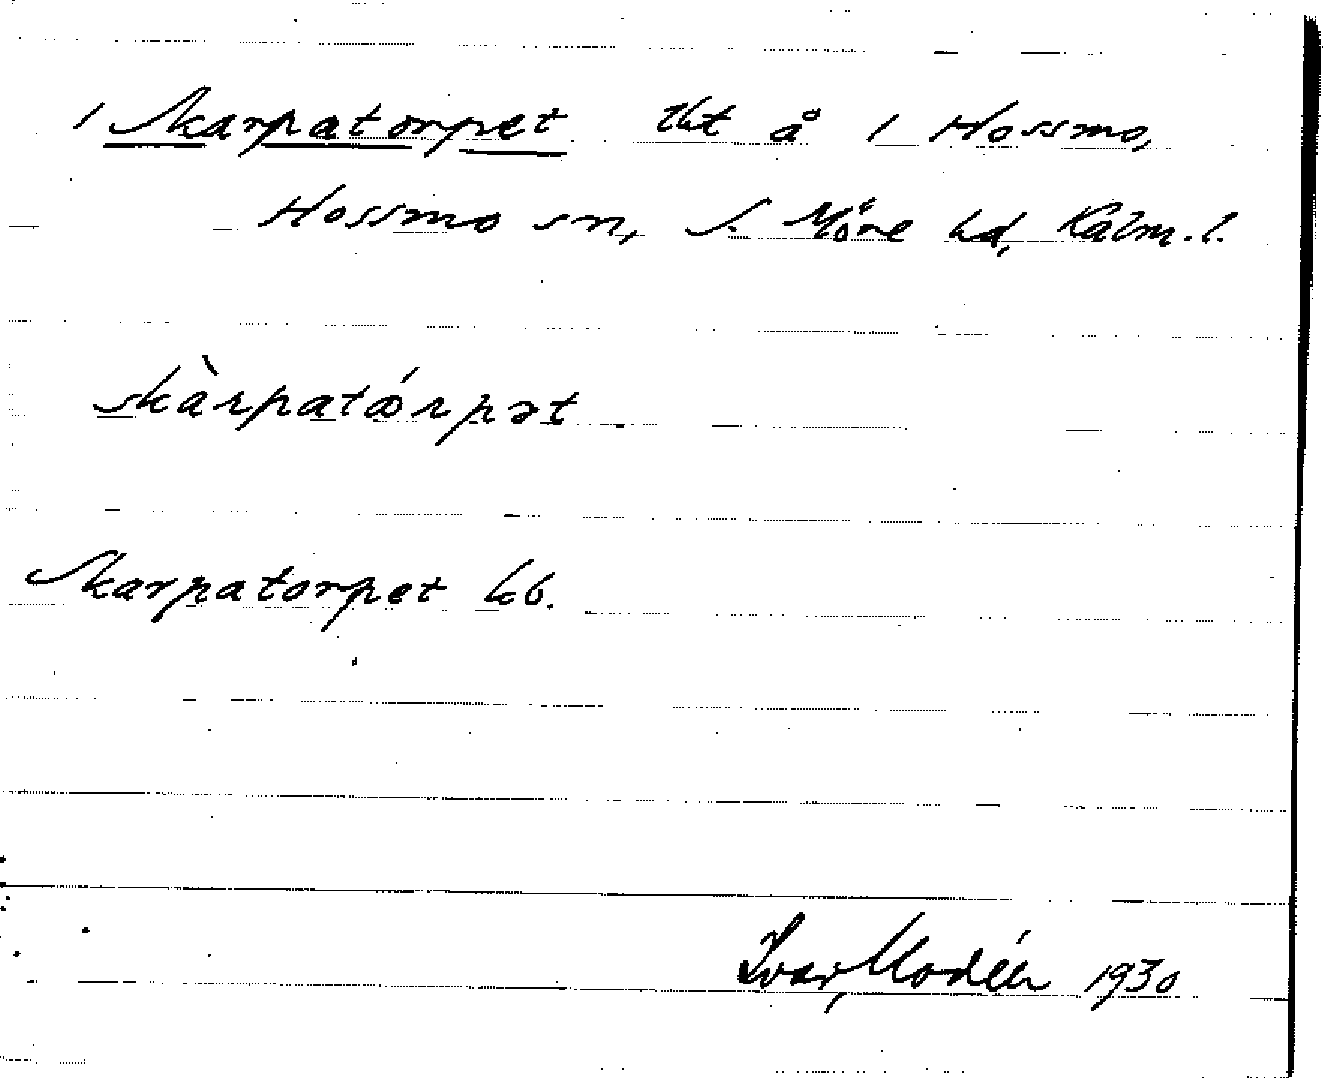 1 Skarpatorpet tkt å 1 Hossmo,
Hossmo sn, S. Möre hd, Kalm. l.
skàrpatårpət
Skarpatorpet kb.
Ivar Modéer 1930